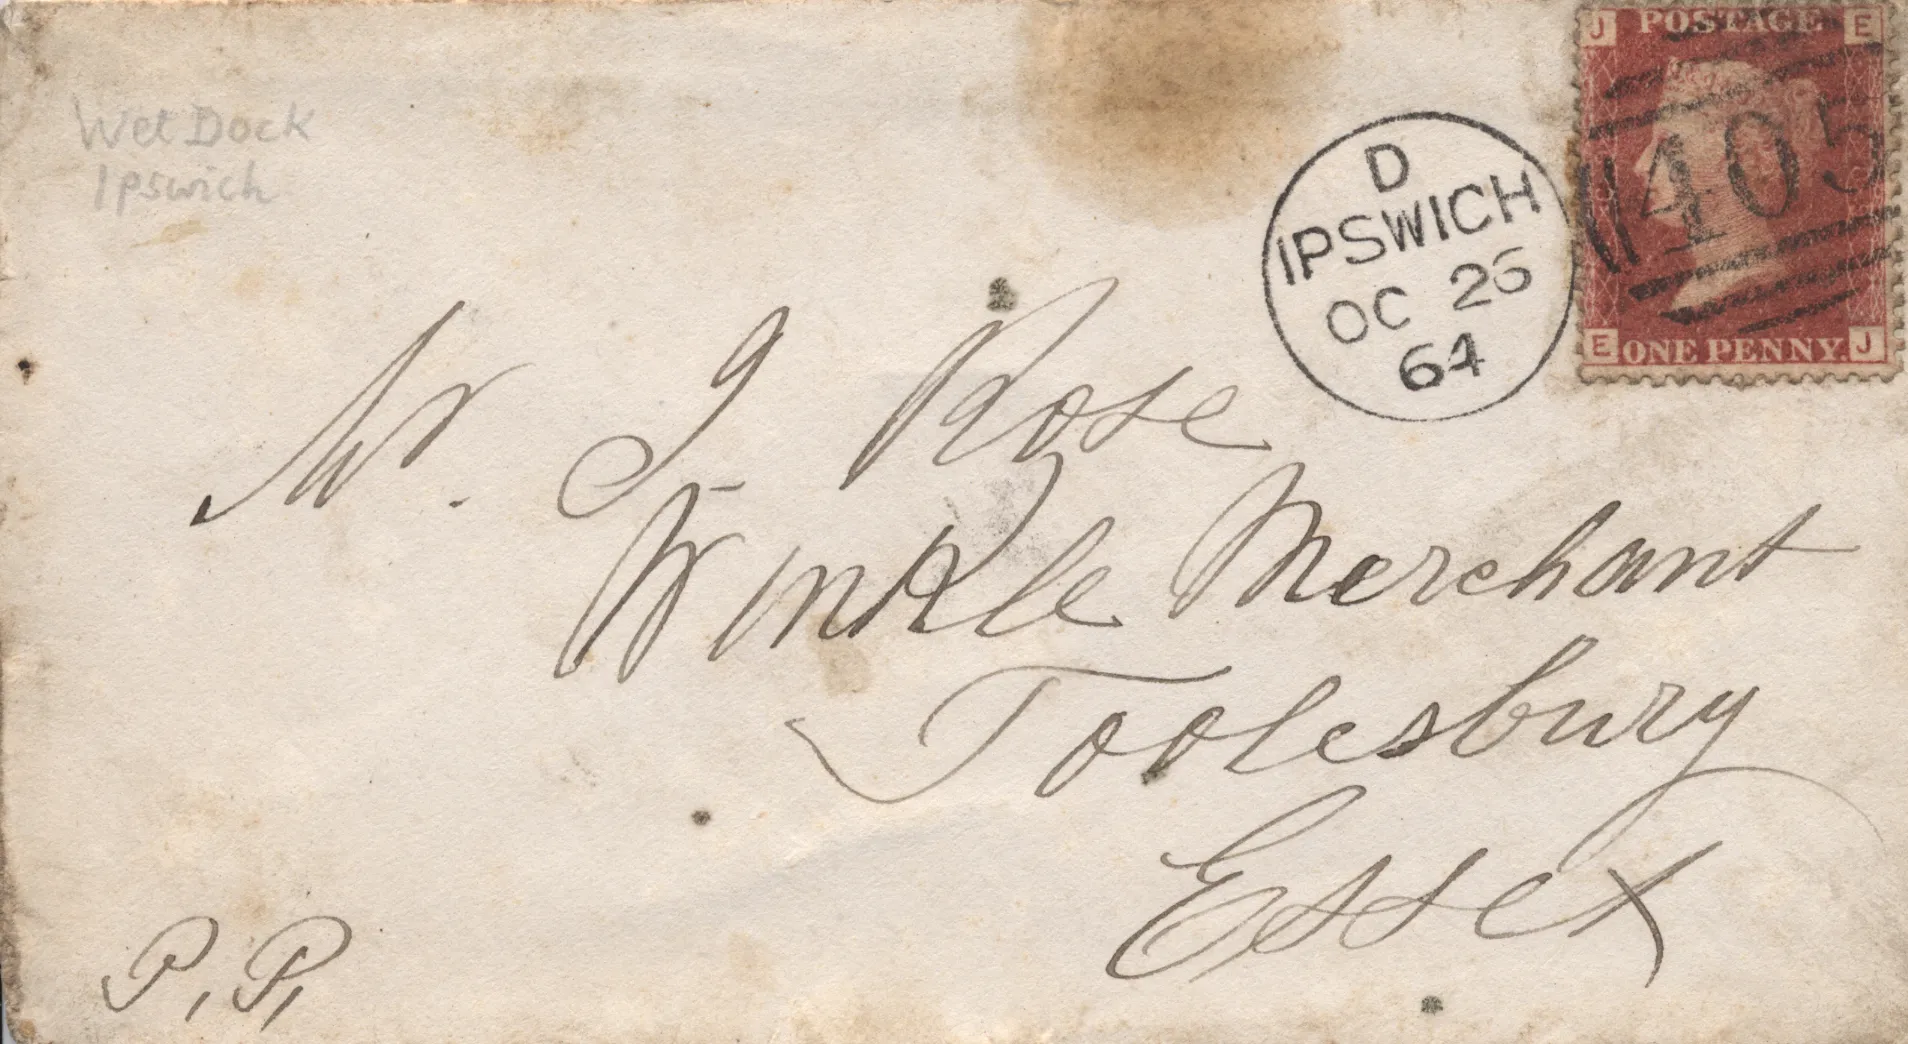 Wet Dock
Ipswich
J POSTAGE E
405
E ONE PENNY. J
D
IPSWICH
OC 26
64
Mr. J Rose
Winkle Merchant
Toolesbury
Essex
P, P,